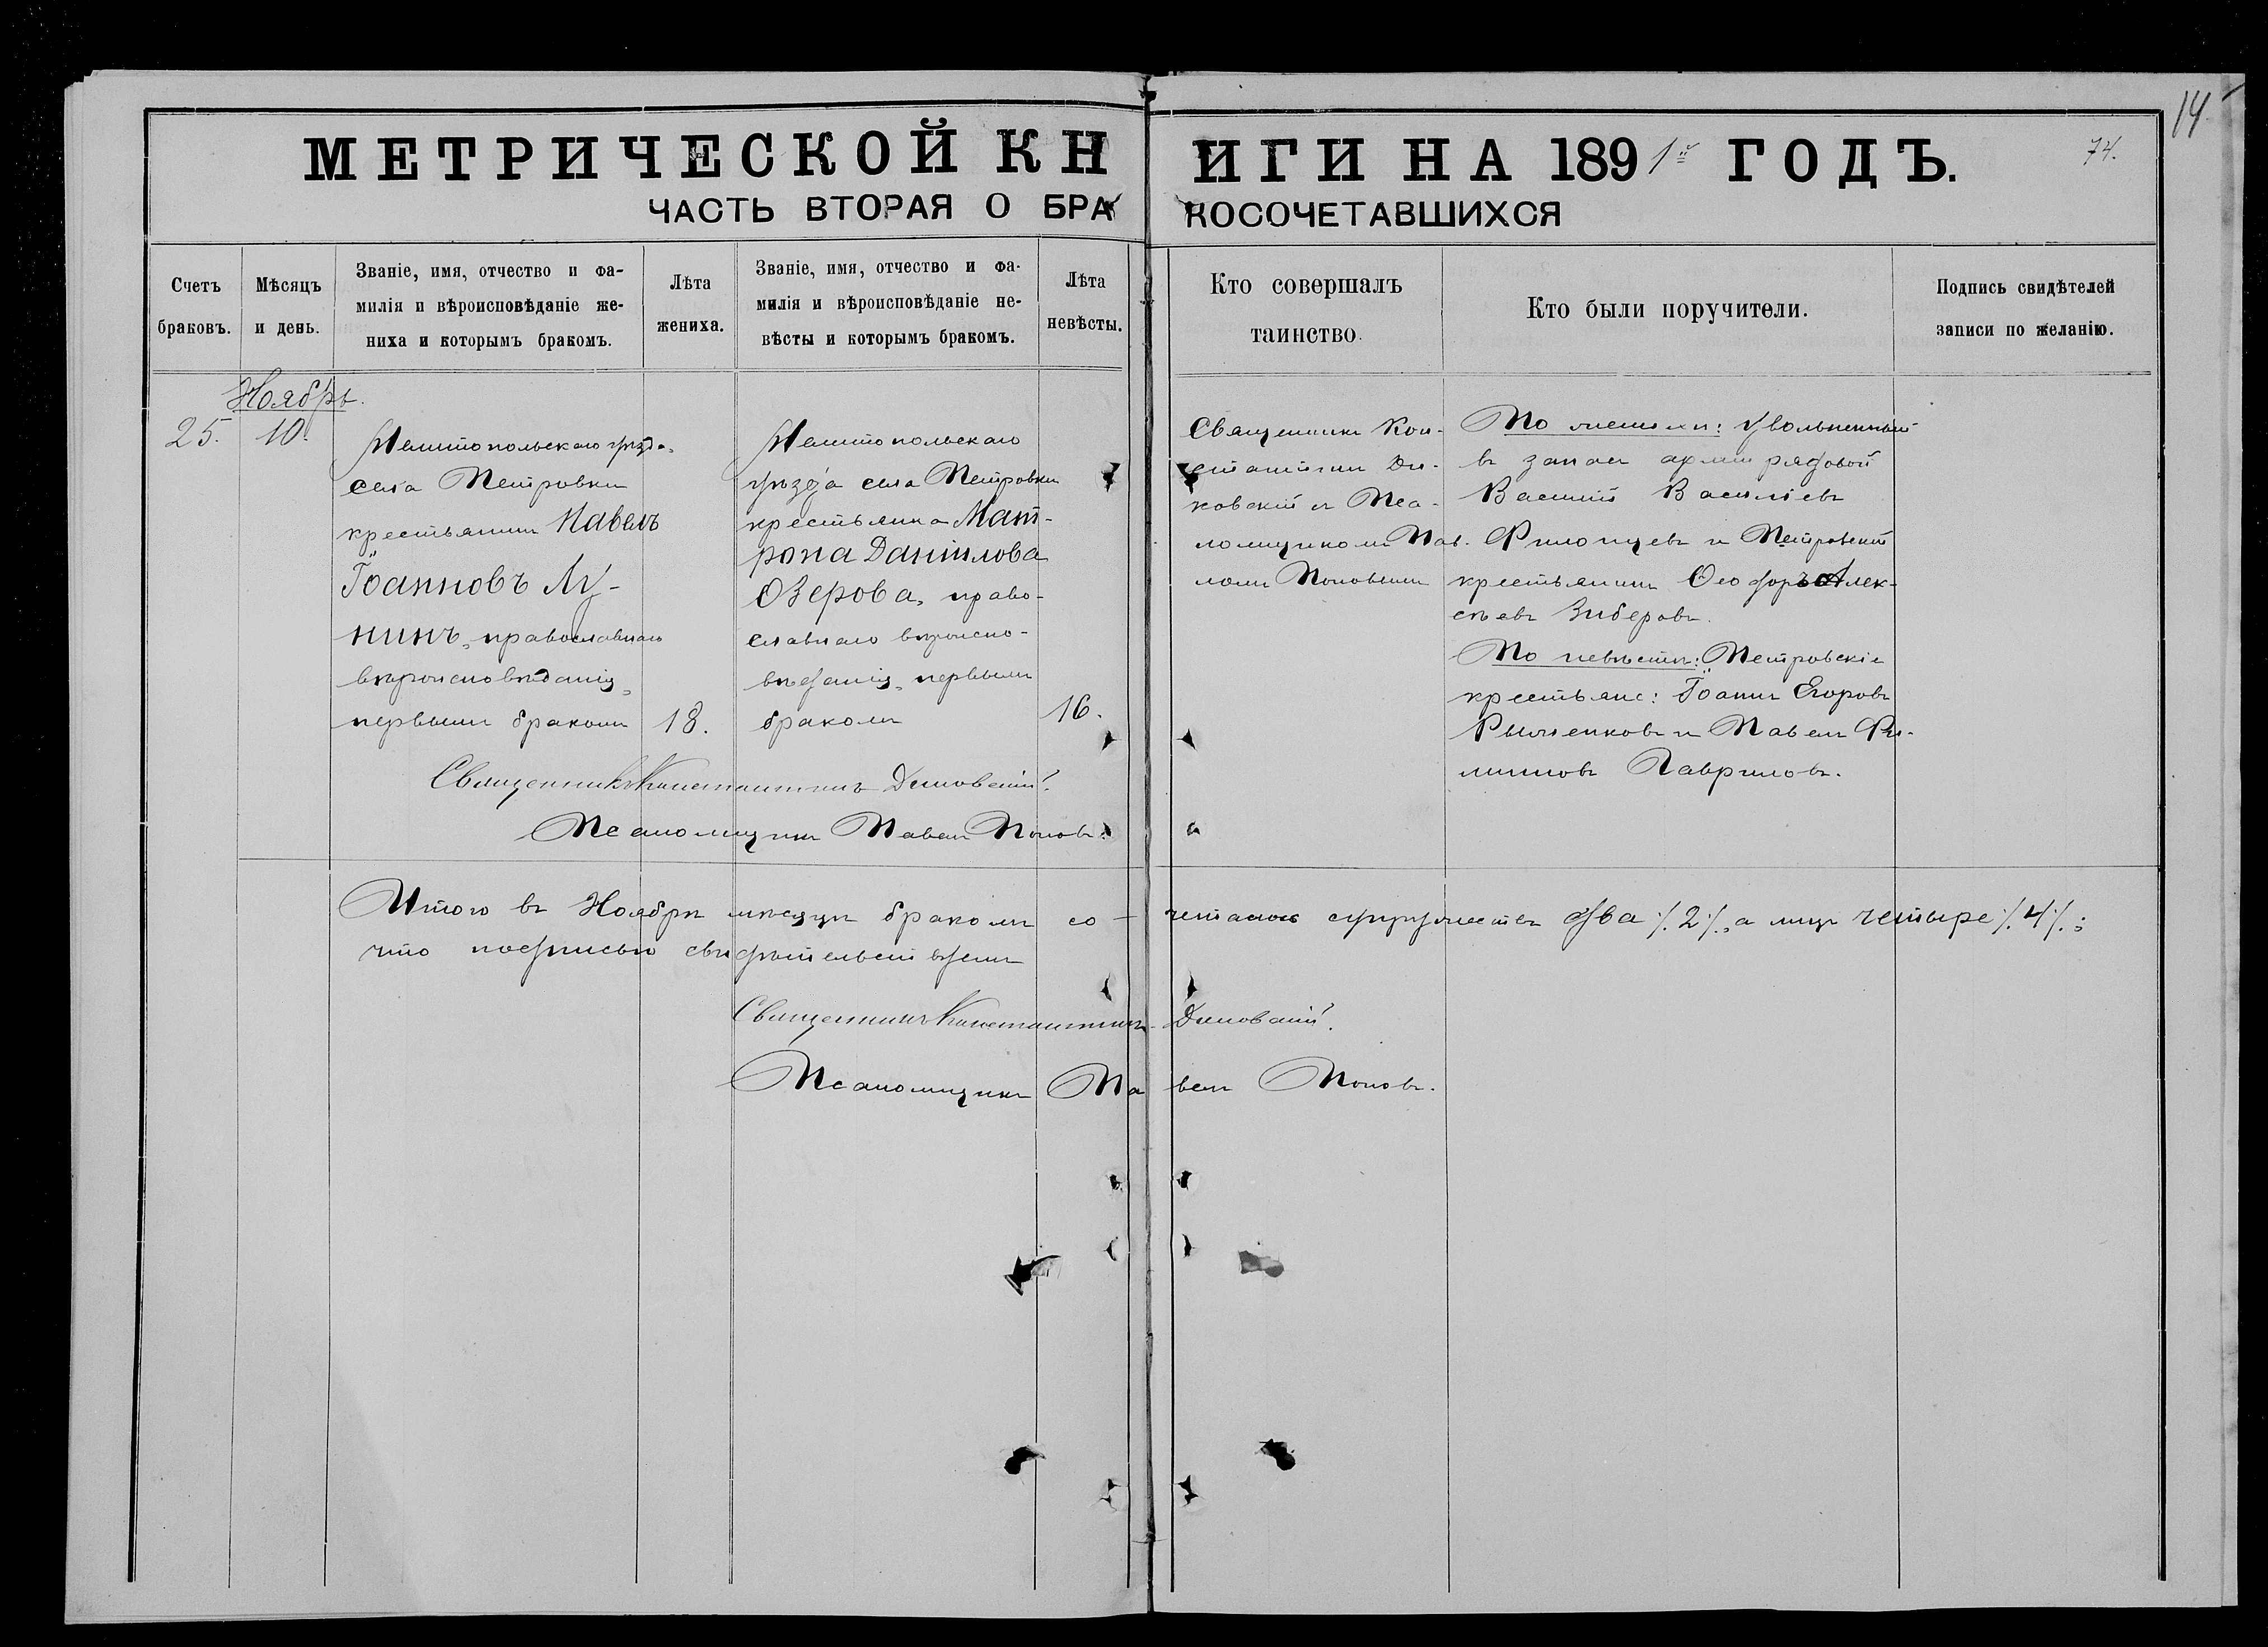 14
74.
МЕТРИЧЕСКОЙ КНИГИ НА 1891й ГОДЪ.
ЧАСТЬ ВТОРАЯ О БРАКОСОЧЕТАВШИХСЯ
Счетъ
браковъ.
Мѣсяцъ
и день.
Званіе, имя, отчество и фа-
милія и вѣроисповѣданіе же-
ниха и которымъ бракомъ.
Лѣта
жениха.
Званіе, имя, отчество и фа-
милія и вѣроисповѣданіе не-
вѣсты и которымъ бракомъ.
Лѣта
невѣсты.
Кто совершалъ
таинство.
Кто были поручители.
Подпись свидѣтелей
записи по желанію.
Ноябрь.
25.
10.
села Петровки
крестьянинъ Павелъ
Іоанновъ Лу-
нинъ, православнаго
вѣроисповѣданія,
первымъ бракомъ
18.
уѣзда села Петровки
крестьянка Мат-
рона Даніилова
Озерова, право-
славнаго вѣроиспо-
вѣданія, первымъ
бракомъ
16.
Священникъ Кон-
стантинъ Ди-
ковскій и Пса-
ломщикомъ Пав-
ломъ Поповымъ
По женихѣ: Уволенный
въ запасъ арміи рядовой
Василій Васильевъ
и Петровскій
крестьянинъ Ѳеодоръ Алек-
сѣевъ Зиберовъ.
По невѣстѣ: Петровскіе
крестьяне: Іоаннъ Егоровъ
и Павелъ Фи-
липповъ Гавриловъ.
Священникъ Константинъ Диковскій.
Псаломщикъ Павелъ Поповъ.
Итого въ Ноябрѣ мѣсяцѣ бракомъ со-четалось супружествъ два ·/.2·/., а лицъ четыре ·/.4·/.;
что подписью свидѣтельствуемъ
Священникъ Константинъ Диковскій.
Псаломщикъ Павелъ Поповъ.